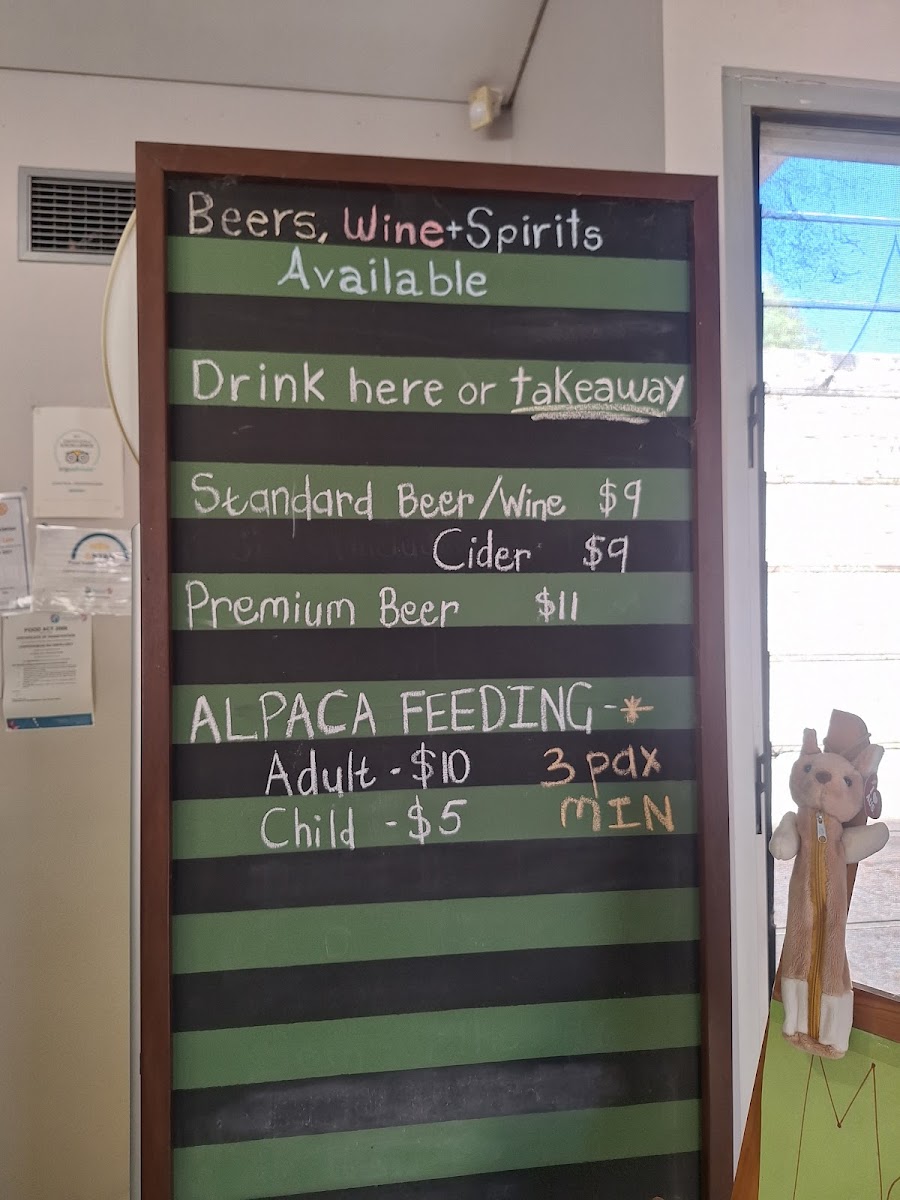 Beers, Wine+Spirits
Available
Drink here or takeaway
Standard Beer/Wine $9
Cider $9
Premium Beer $11
ALPACA FEEDING -*
Adult - $10 3 pax
Child - $5 MIN
FOOD ACT 2006
M